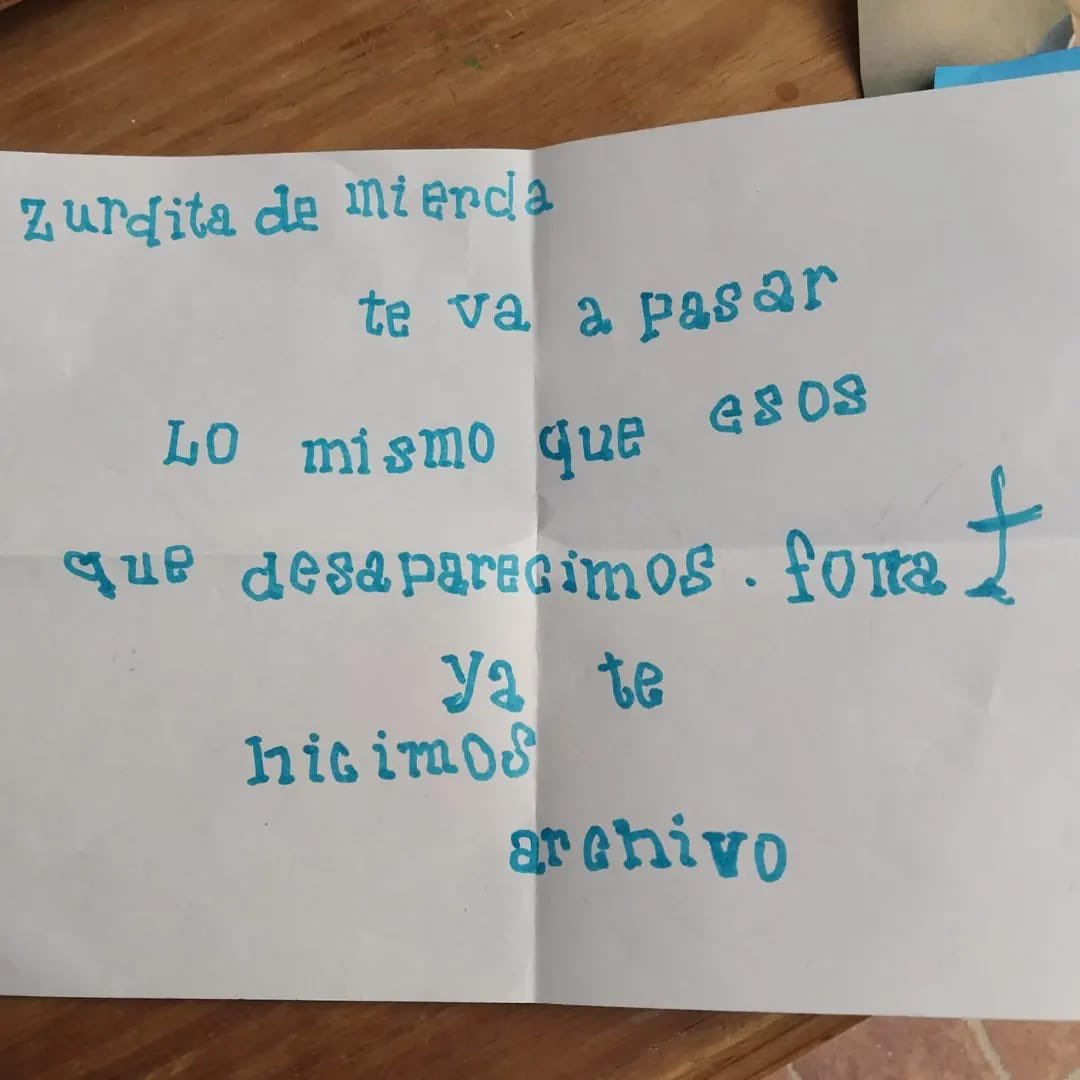 zurdita de mierda
te va a pasar
LO mismo que esos
que desaparecimos. forra
ya te
hicimos
archivo